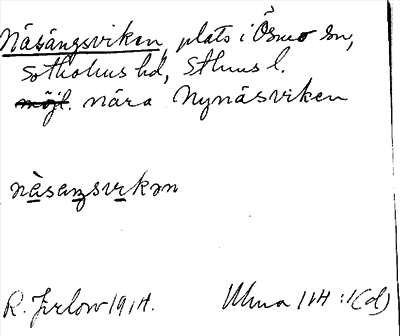 Näsängsviken, plats i Ösmo sn,
Sotholms hd, Sthms l.
möjl. nära Nynäsviken
näsaŋsvikən
R. Jirlow 1914.
Ulma 114:1(d)